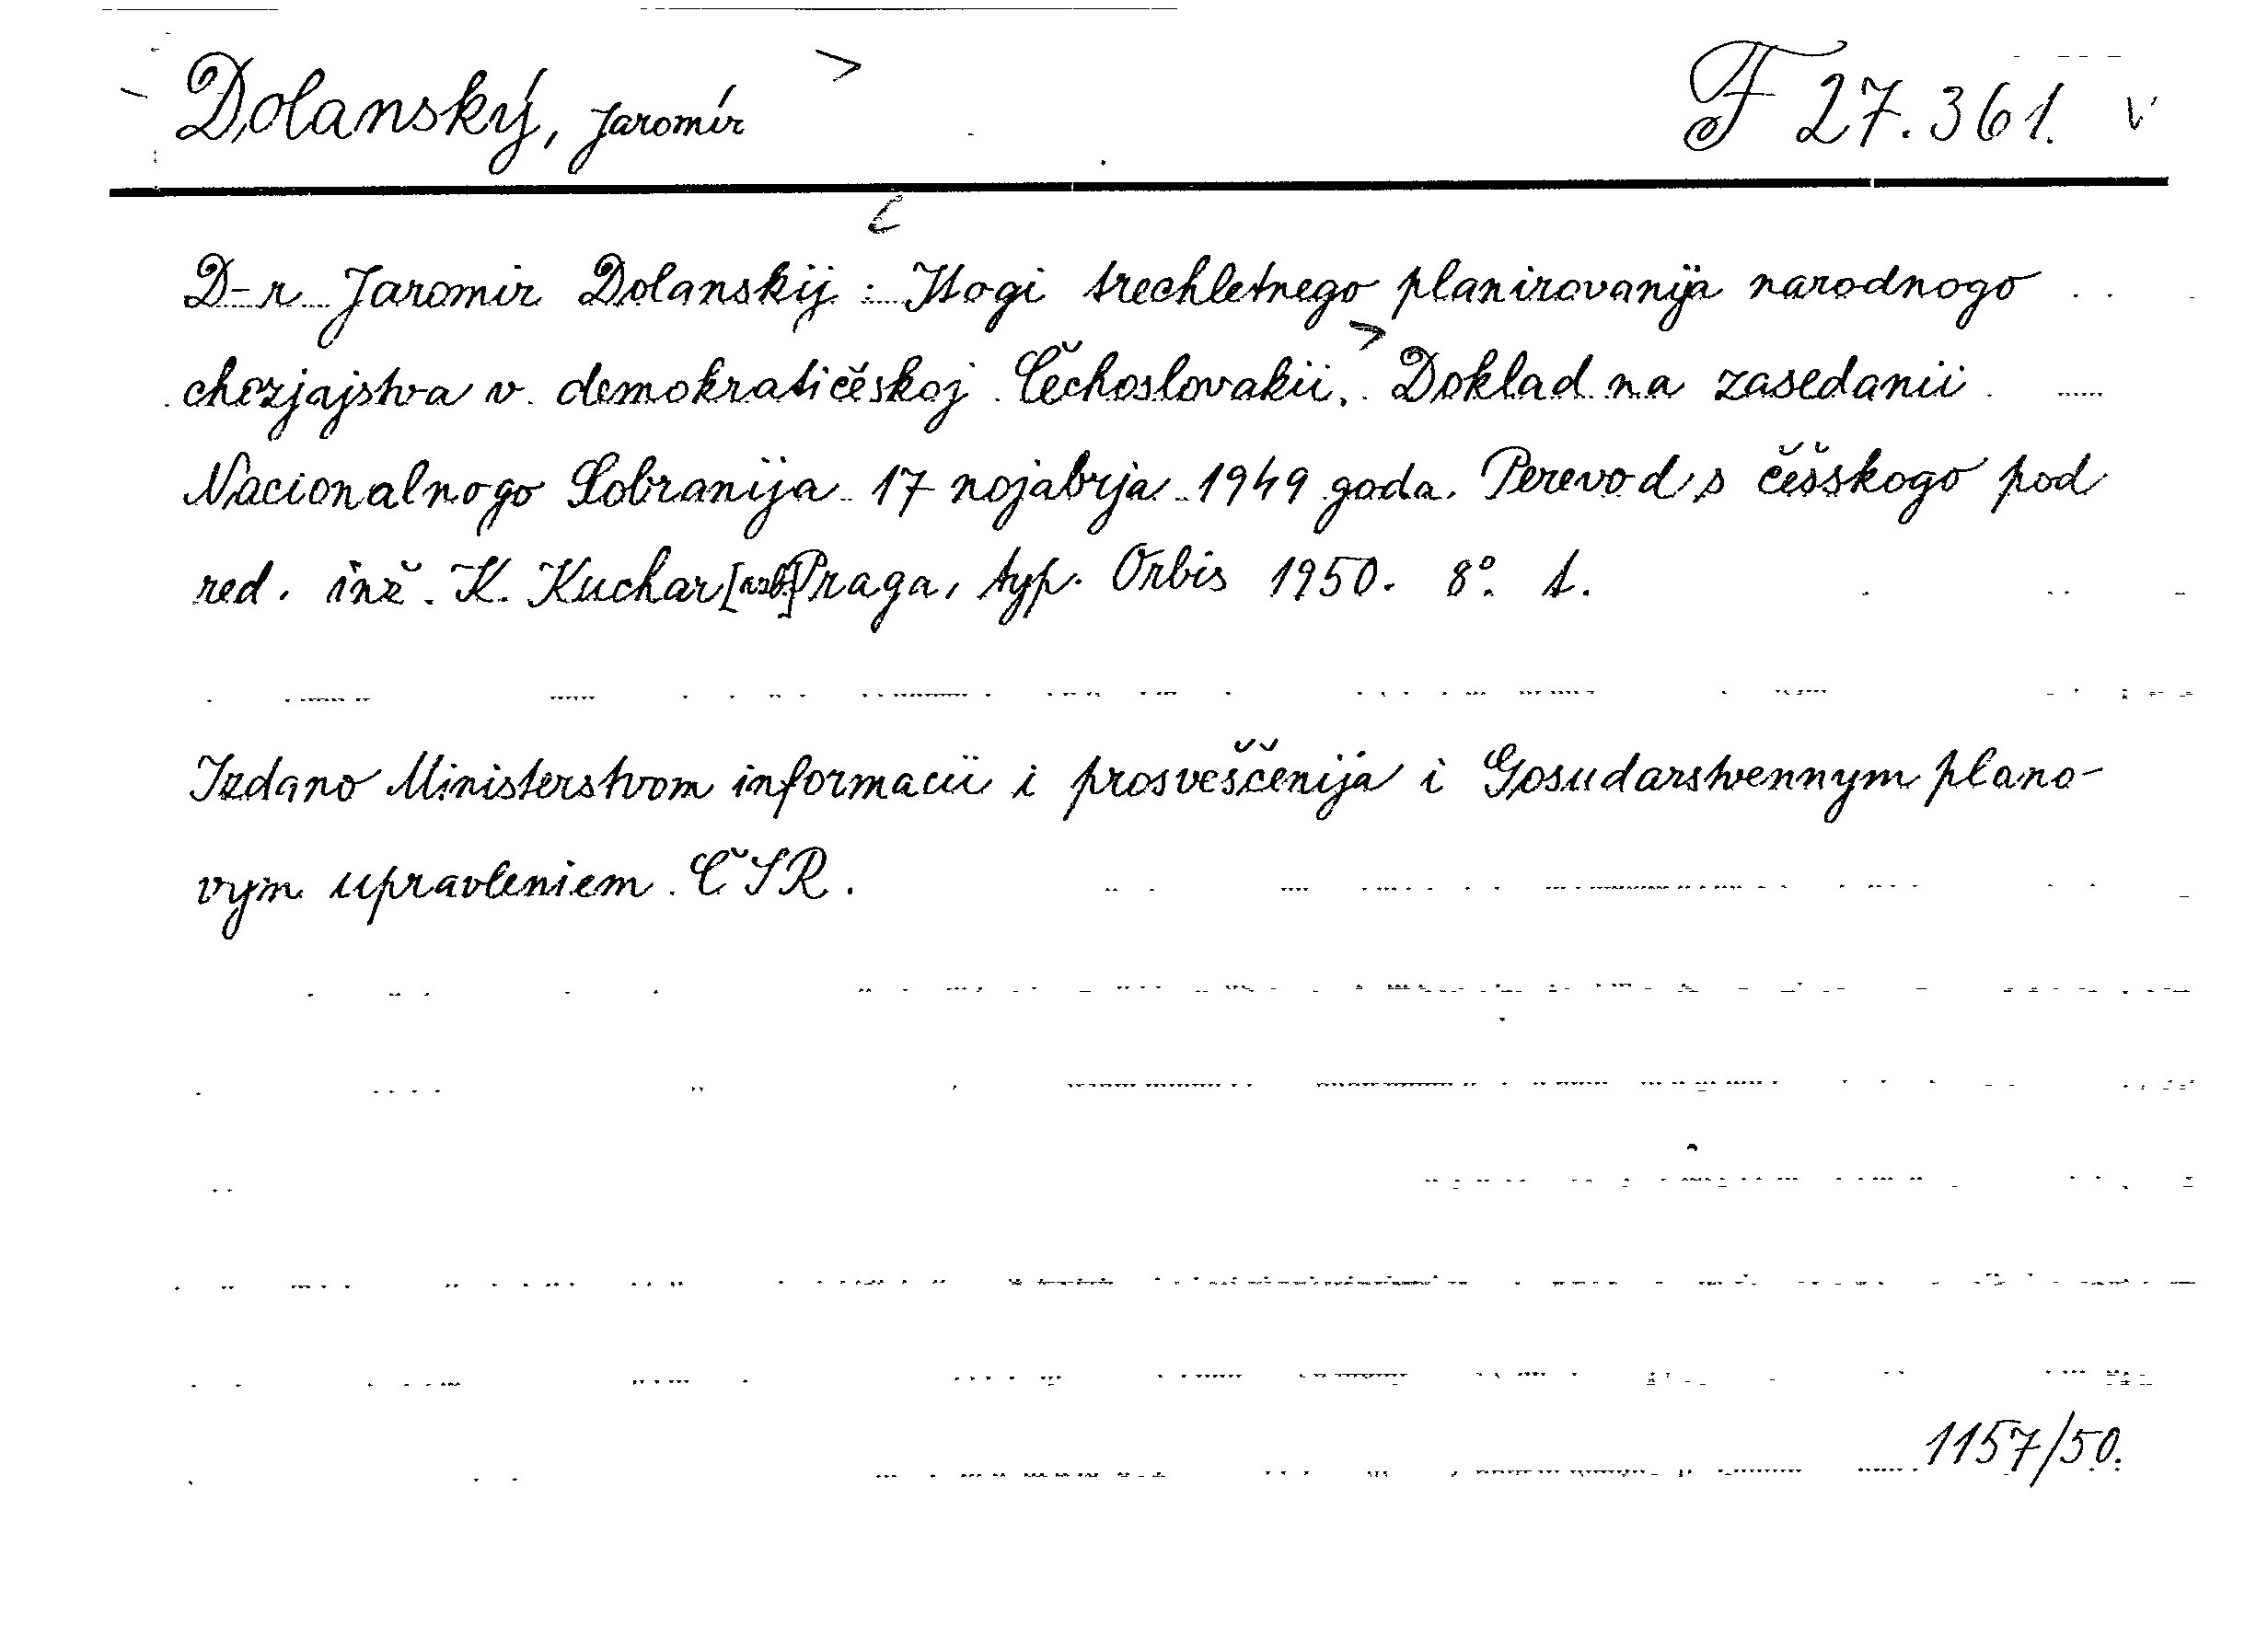 Dolanský, Jaromír F 27.361.
D-r Jaromir Dolanskij: Itogi trechletnego planirovanija narodnogo
chozjajstva v demokratičěskoj Čechoslovakii. Doklad na zasedanii
Nacionalnogo Sobranija 17 nojabrja 1949 goda. Perevod s češskogo pod
red. inž. K. Kuchar Praga, typ. Orbis 1950. 8°. t.
Izdano Ministerstvom informacii i prosveščenija i Gosudarstvennym plano-
vym upravleniem ČSR.
1157/50.